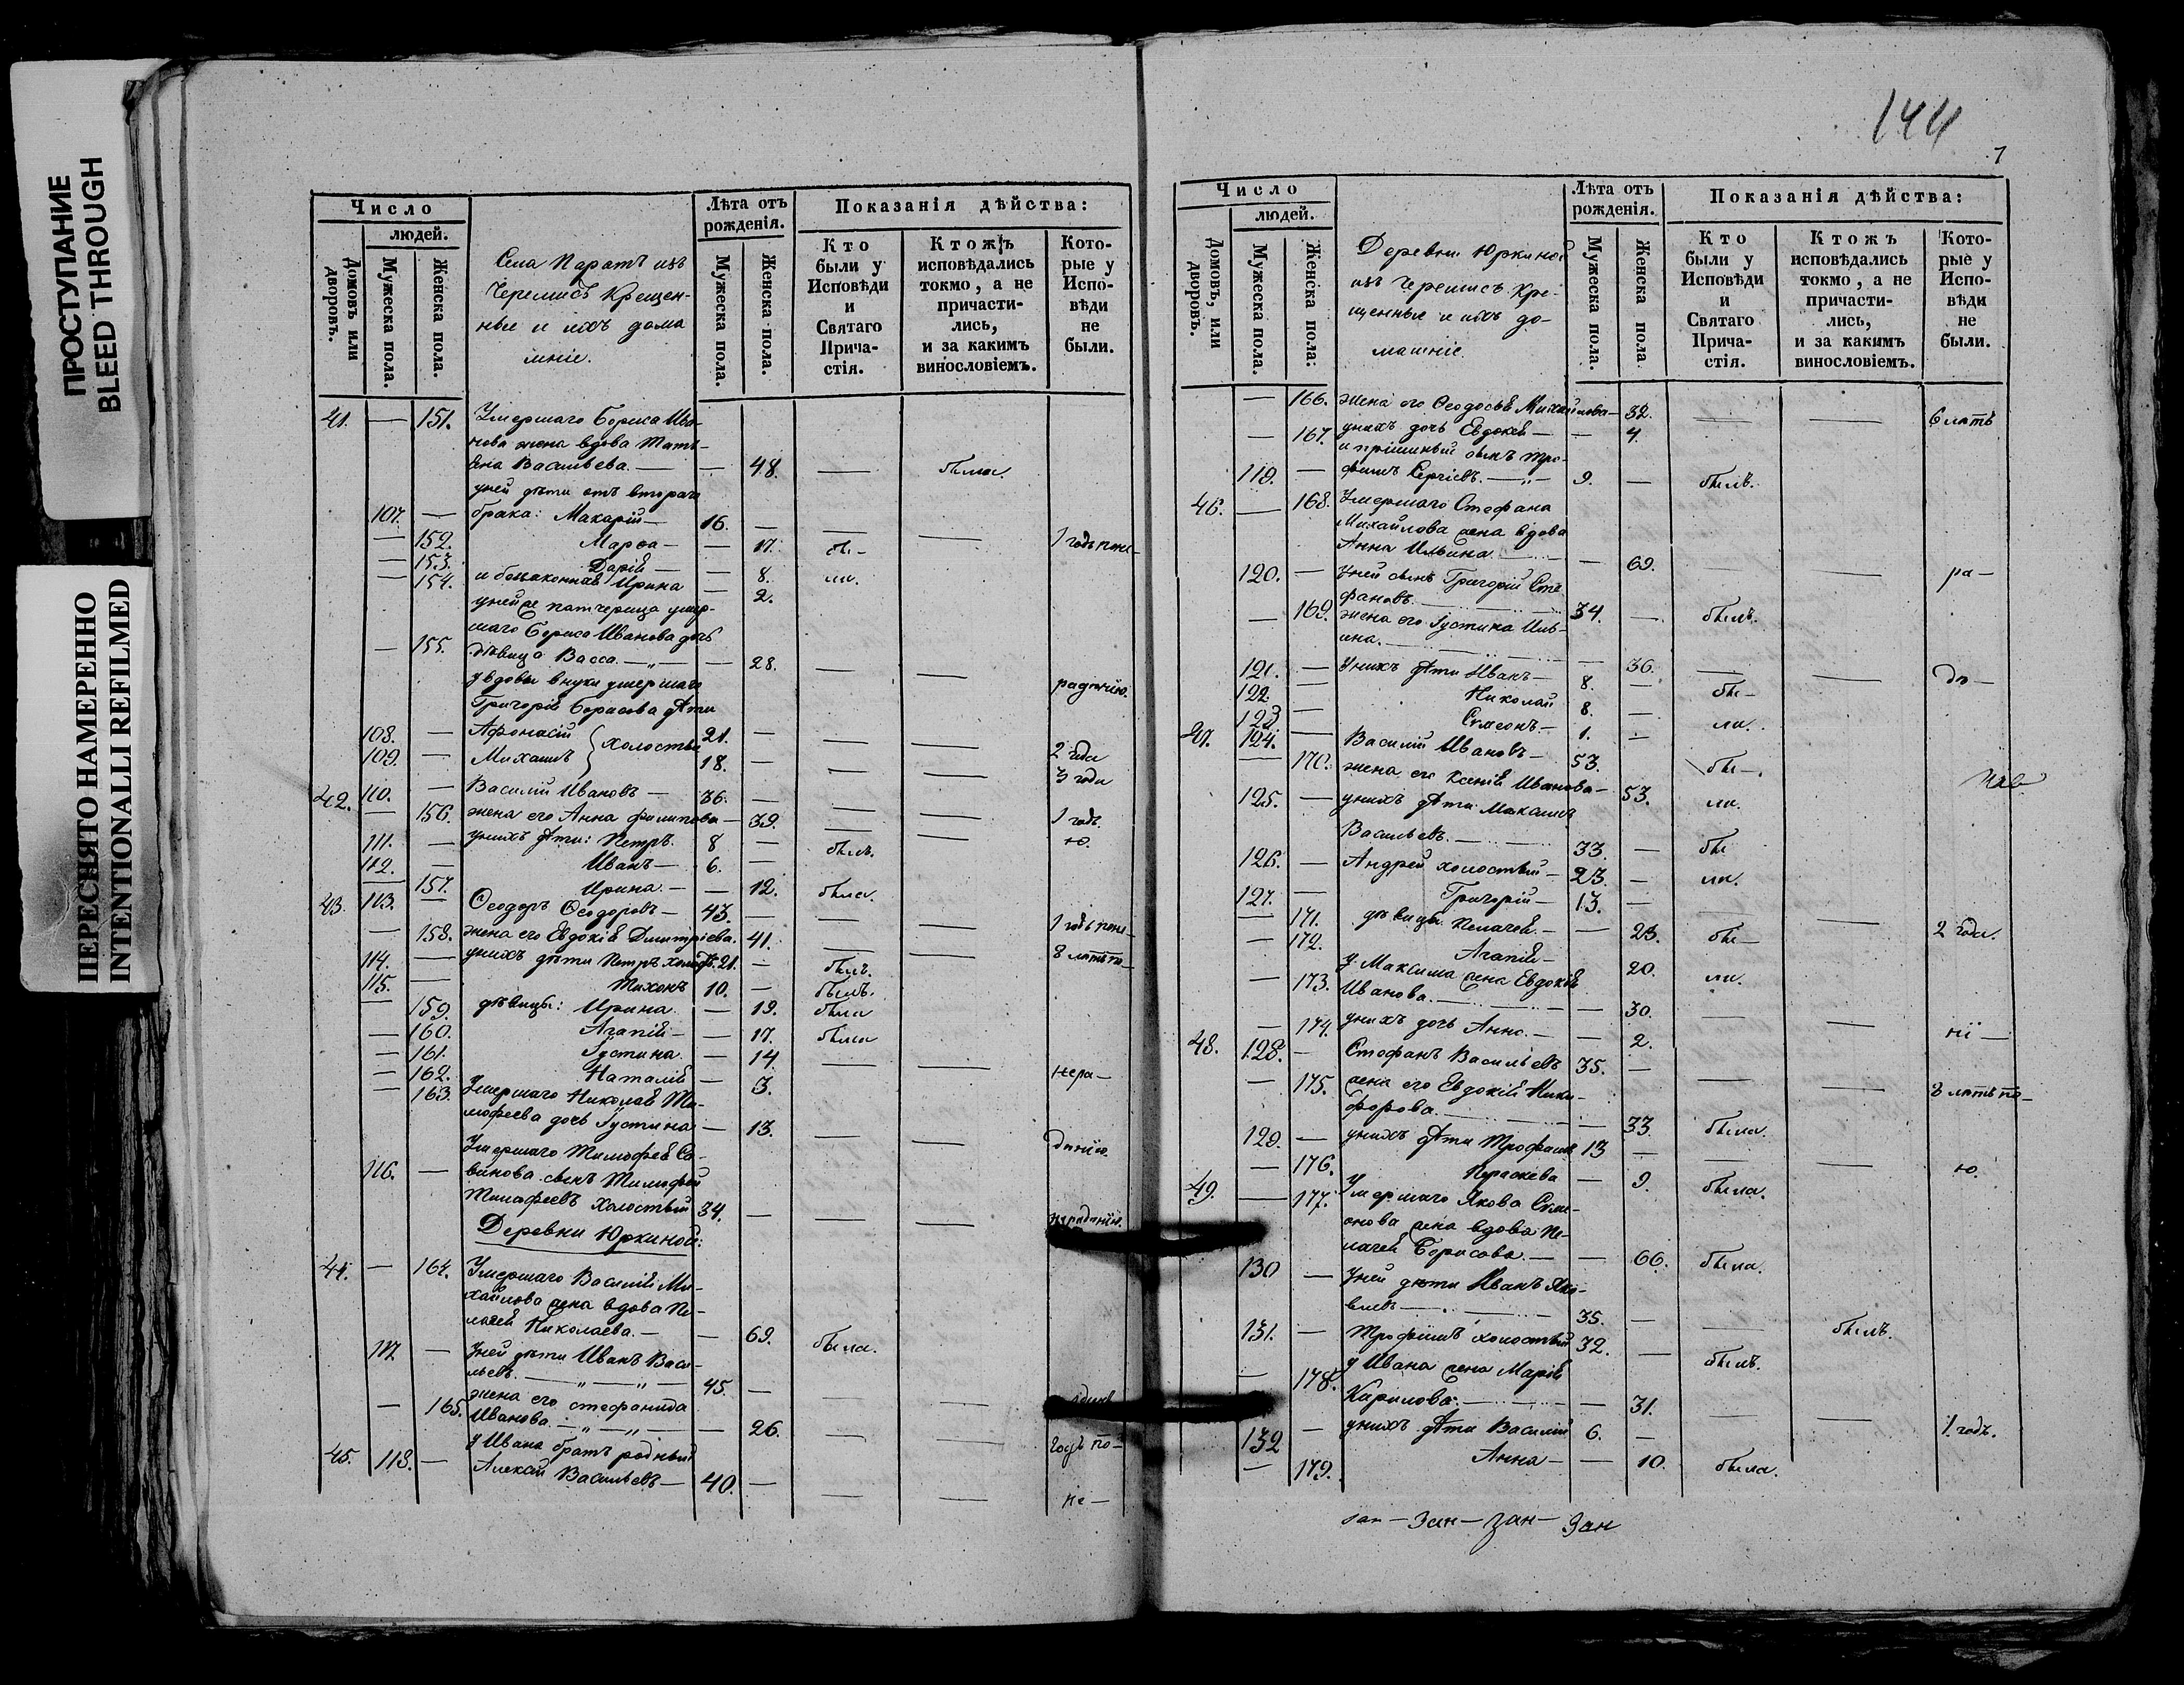 ПРОСТУПАНИЕ
BLEED THROUGH
ПЕРЕСНЯТО НАМЕРЕННО
INTENTIONALLI REFILMED
Число
людей.
Домовъ или дворовъ.
Мужеска пола.
Женска пола.
Села Паратъ изъ
Черемисъ Крещен-
ные и ихъ дома
шніе.
Лѣта отъ рожденія.
Мужеска пола.
Женска пола.
Показанія дѣйства:
Кто были у Исповѣди и Святаго Прича- стія.
Ктожъ исповѣдались токмо, а не причасти- лись, и за какимъ винословіемъ.
Кото- рые у Испо- вѣди не были.
41. — 151. Умершаго Бориса Ива-
нова жена вдова Тать-
яна Васильева — — 48. — была
у ней дѣти отъ втораго
107. — брака: Макарій — 16. — — — 1 годъ
— 152. Марѳа — — 17. бы-
— 153. Дарія — — 8. ли.
— 154. и беззаконная Ирина — 2.
у ней же патчерица умер-
шаго Бориса Иванова дочь
— 155. дѣвица Васса — „ — — 28. — —
у вдовы внуки умершаго
Григорія Борисова дѣти
108. — Афонасій } холосты 21. — — — 2 года
109. — Михаилъ 18. — — — 3 года
42. 110. — Василій Ивановъ — 36. — — — 1 годъ
— 156. жена его Анна Филипова — 39. — —
111. — у нихъ дѣти: Петръ. 8 — былъ.
112. — Иванъ — 6. —
— 157. Ирина. — — 12. была.
43. 113. — Ѳеодоръ Ѳеодоровъ — 43. — — — 1 годъ
— 158. жена его Евдокія Димитріева. 41. — — 8 лѣтъ
114. — у нихъ дѣти Петръ холостъ. 21. — былъ.
115. — Тихонъ 10. — былъ.
— 159. дѣвицы: Ирина. — 19. была
— 160. Агапія — — 17. была
— 161. Іустина. — 14. — — нера-
— 162. Наталія — 3.
— 163. Умершаго Николая Ти-
мофеева дочь Іустина — — 13. — — дѣнію.
Умершаго Тимофея Са-
116. — винова сынъ Тимофей
Тимофеевъ холостый 34. — — — нерадѣнію.
Деревни Юркиной:
44. — 164. Умершаго Василія Ми-
хайлова жена вдова Пе-
лагея Николаева. — — 69. была.
117 — У ней дѣти Иванъ Васи-
льевъ. — „ — „ — 45. — — —
— 165. жена его Стефанида
Иванова. — „ — „ — — 26. — — годъ по-
45. 118. — у Ивана братъ родный
Алексѣй Васильевъ — 40. — — — не —
144
7
Число
людей.
Домовъ, или дворовъ.
Мужеска пола.
Женска пола.
Деревни Юркиной
изъ Черемисъ Кре-
щенные и ихъ до-
машніе.
Лѣта отъ рожденія.
Мужеска пола.
Женска пола
Показанія дѣйства:
Кто были у Исповѣди и Святаго Прича- стія.
Ктожъ исповѣдались токмо, а не причасти- лись, и за какимъ винословіемъ.
Кото- рые у Испо- вѣди не были.
— 166. жена его Ѳеодосья Михайлова — 32. — — 6 лѣтъ
— 167. у нихъ дочь Евдокія — — 4.
и сынъ Тро-
119. — фимъ Сергіевъ. — „ — 9. — былъ.
46. — 168. Умершаго Стефана
Михайлова жена вдова
Анна Ильина. — — 69. — — ра —
120. — У ней сынъ Григорій Сте-
фановъ. — 34. — былъ.
— 169. жена его Іустина Иль-
ина. — — 36. — — дѣ —
121. — У нихъ дѣти Иванъ — 8. — бы —
122 — Николай 8. — ли.
123 — Симеонъ — 1. —
47. 124. — Василій Ивановъ — 53. бы —
— 170. жена его Ксенія Иванова — 53. ли.
125. — у нихъ дѣти Максимъ
Васильевъ. — 33. — бы
126. — Андрей холостый — 23. — ли.
127. — Григорій — 13. — — — 2 года.
— 171. дѣвицы Пелагея. — — 23. бы —
— 172. Агапія — 20. ли.
— 173. у Максима жена Евдокія
Иванова. — — 30. — — ні —
— 174. у нихъ дочь Анна. — — 2.
48. 128. — Стефанъ Васильевъ 35. — — — 3 лѣтъ по —
— 175. жена его Евдокія Ники-
форова. — — 33. была.
129. — у нихъ дѣти Трофимъ 13 — — — ю.
— 176. Параскева — 9. была.
49. — 177. Умершаго Якова Симе-
онова жена вдова Пе-
лагея Борисова. — — 66. была.
130 — У ней дѣти Иванъ Яко-
влевъ — 35. — — былъ.
131. — Трофимъ холостый 32. — былъ.
— 178. у Ивана жена Марія
Кирилова. — — 31. — — 1 годъ.
132 — у нихъ дѣти Василій 6. —
— 179. Анна — — 10. была.
зан — зан — зан — зан